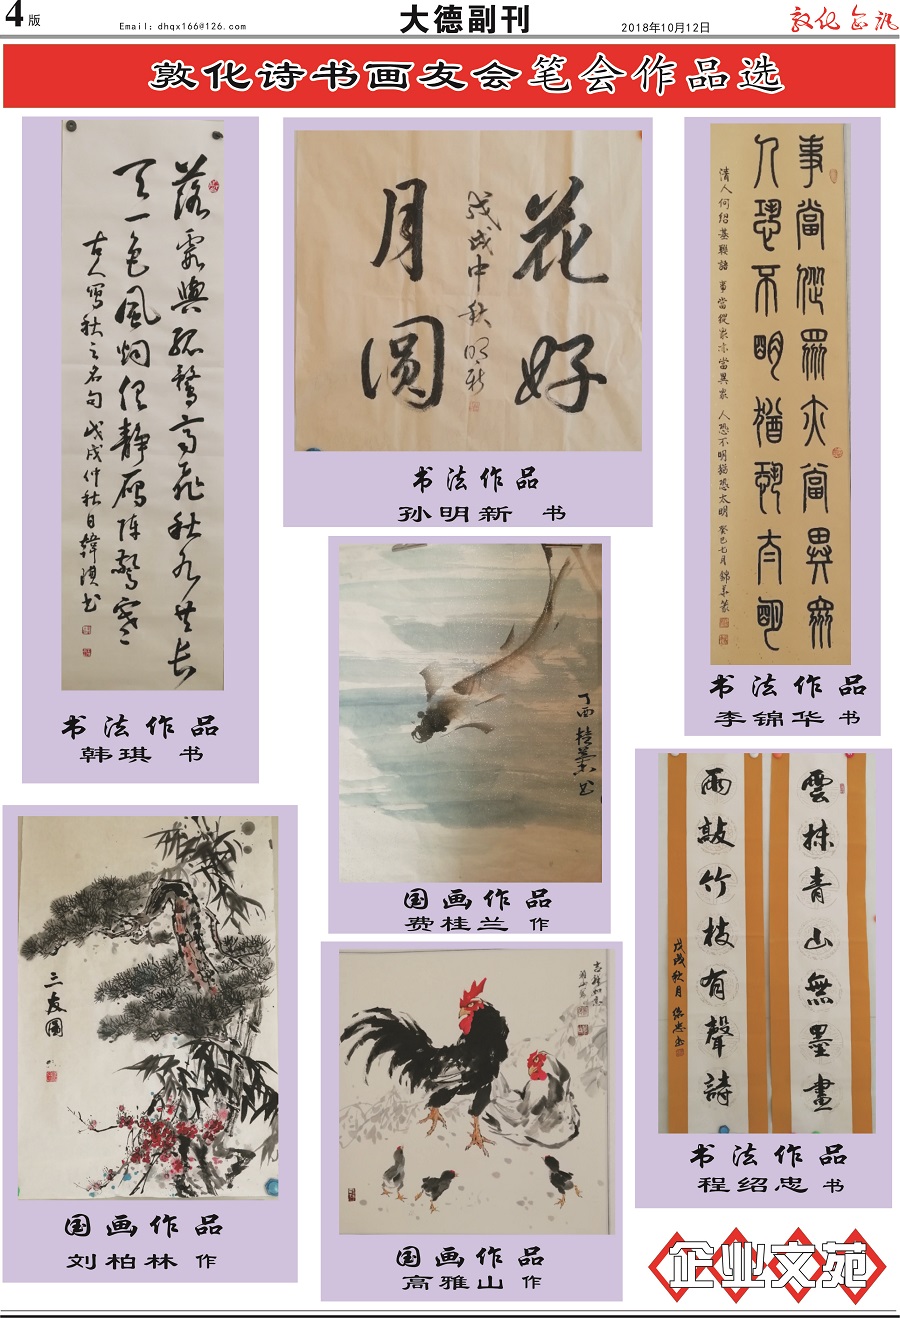 4版
Email: dhqx166@126.com
大德副刊
2018年10月12日
敦化诗书画友会笔会作品选
落霞與孤鶩高飛秋水共長
天一色風
静雁陣驚寒
古人寫秋之名句 戊戌仲秋日韓琪书
书法作品
韩琪 书
花好
戊戌中秋明新
月圆
书法作品
孙明新 书
事當從眾亦當異眾
人恐不明猶恐太明
清人何绍基聯語 事當從眾亦當異眾 人恐不明猶恐太明 癸巳七月錦華篆
书法作品
李锦华 书
丁酉桂兰
国画作品
费桂兰 作
三友圖
国画作品
刘柏林 作
国画作品
高雅山 作
雲抹青山無墨畫
雨敲竹枝有聲詩
戊戌秋月 绍忠书
书法作品
程绍忠 书
企业文苑